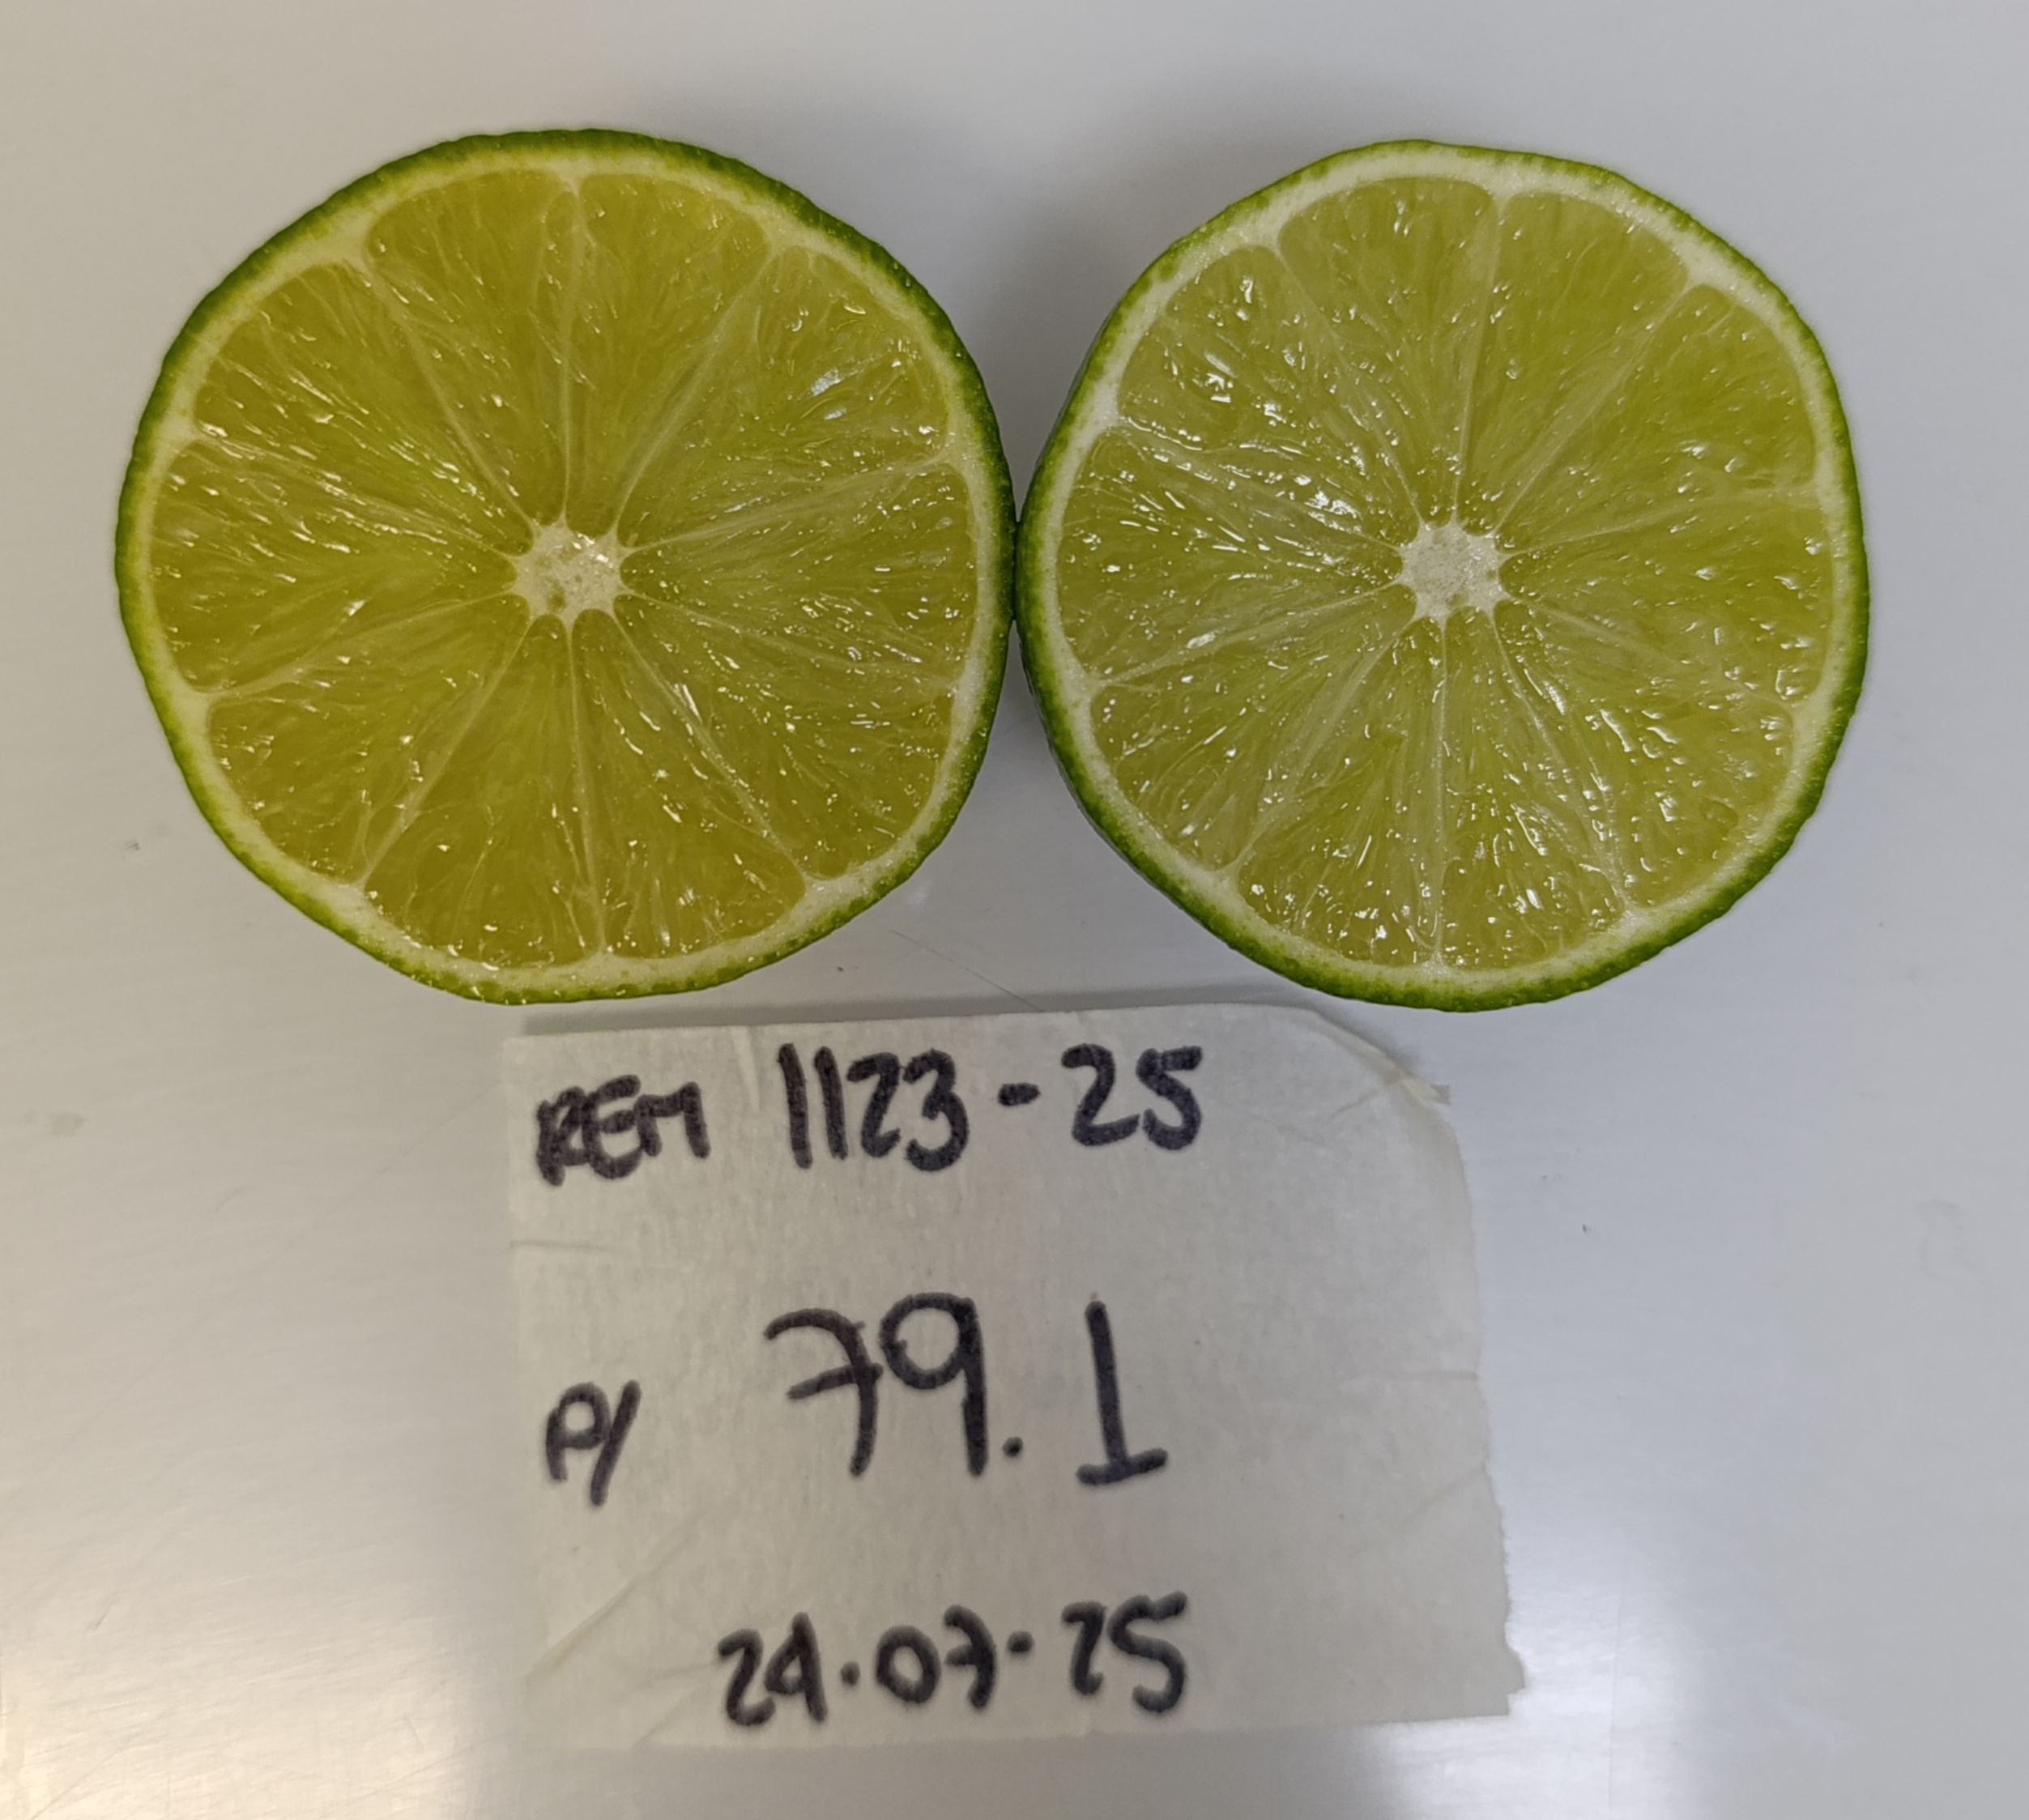 REM 1123-25
P/ 79.1
24.07-25